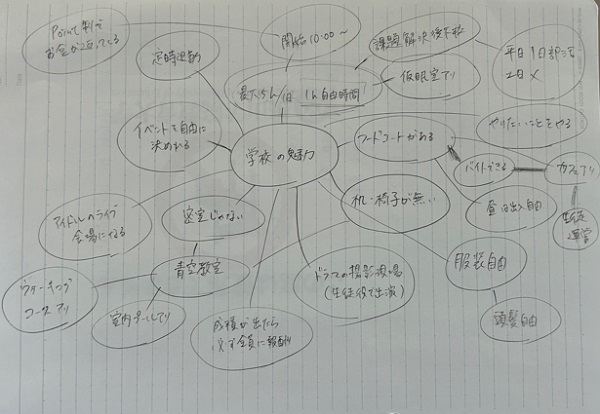 Point制で
お金が返ってくる
定時退勤
開始10:00〜
最大5h/日 1h自由時間
課題解決後下校
仮眠室アリ
平日1日部活
土日×
イベントを自由に
決めれる
学校の魅力
フードコートがある
やりたいことをやる
バイトできる
カフェアリ
昼日出入自由
生徒
運営
机・椅子が無い
服装自由
頭髪自由
アイドルのライブ
会場になる
密室じゃない
青空教室
ウォーキング
コースアリ
室内プールアリ
成績が出たら
必ず全員に報酬
ドラマの撮影現場
(生徒役で出演)